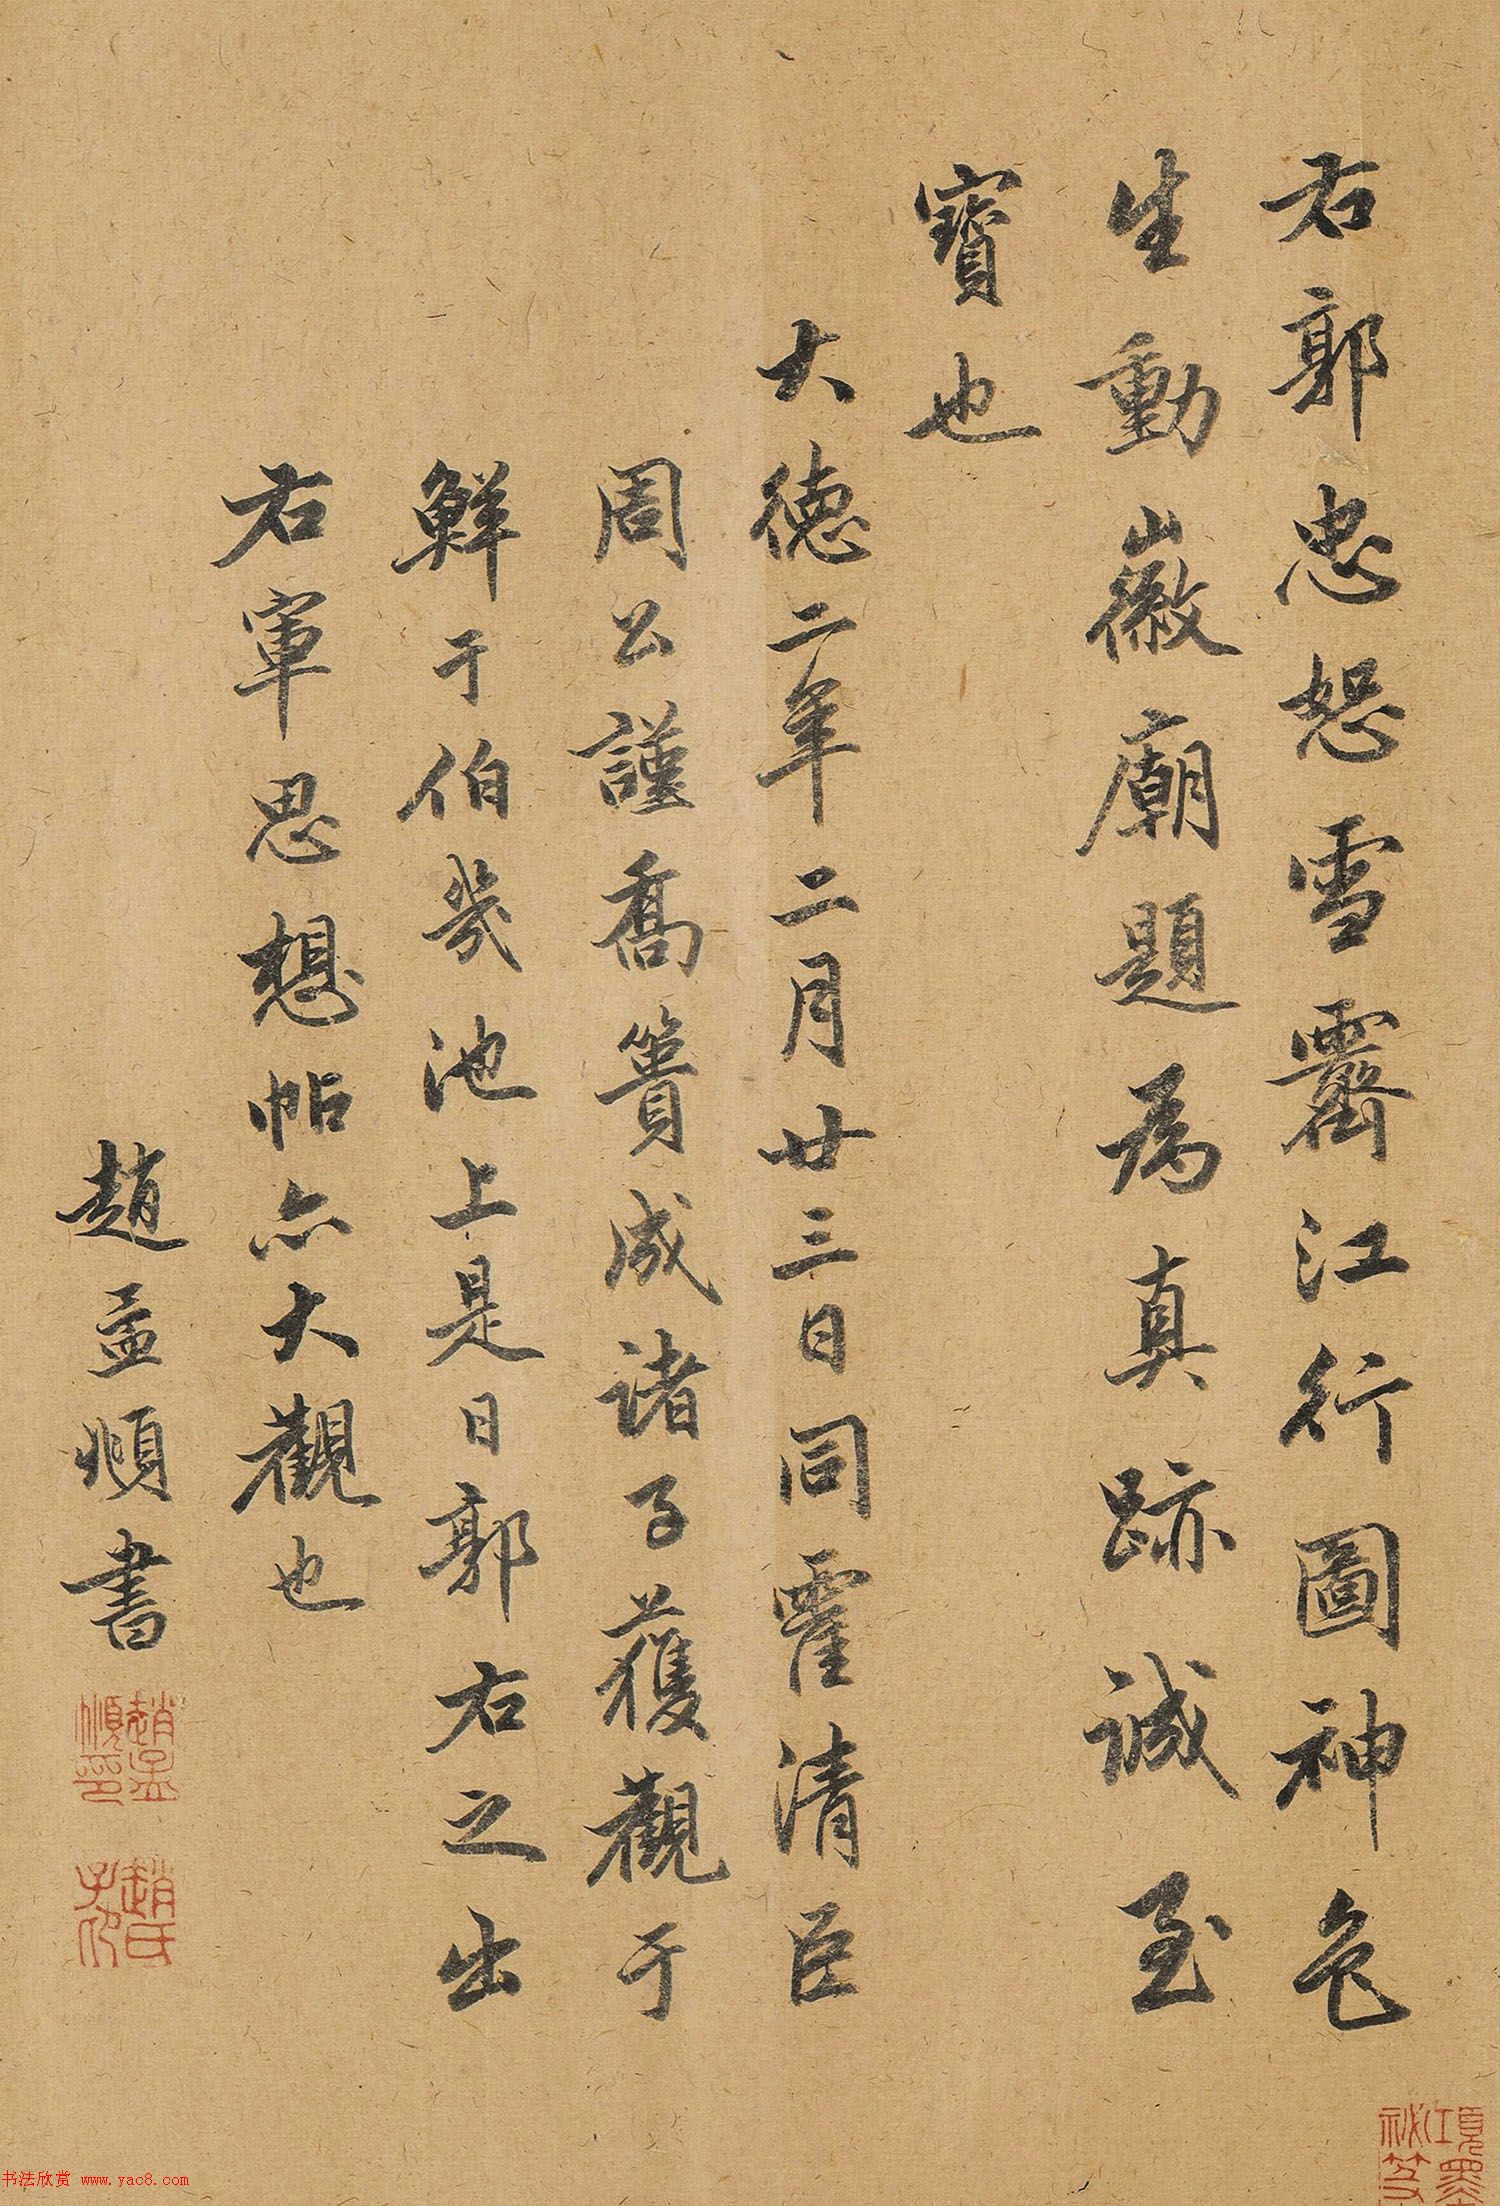 右郭忠恕雪霽江行圖神色
生動徽廟題為真跡誠至
寶也
大德二年二月廿三日同霍清臣
周公謹喬簣成諸子獲觀于
鮮于伯幾池上是日郭右之出
右軍思想帖亦大觀也
趙孟頫書
趙孟頫印
趙氏子昂
項墨
祕笈
书法欣赏 www.yac8.com